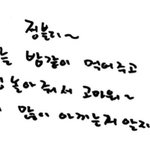 정블리~
늘 밤같이 먹어주고
놀아줘서 고마워~
많이 아끼는거 알지